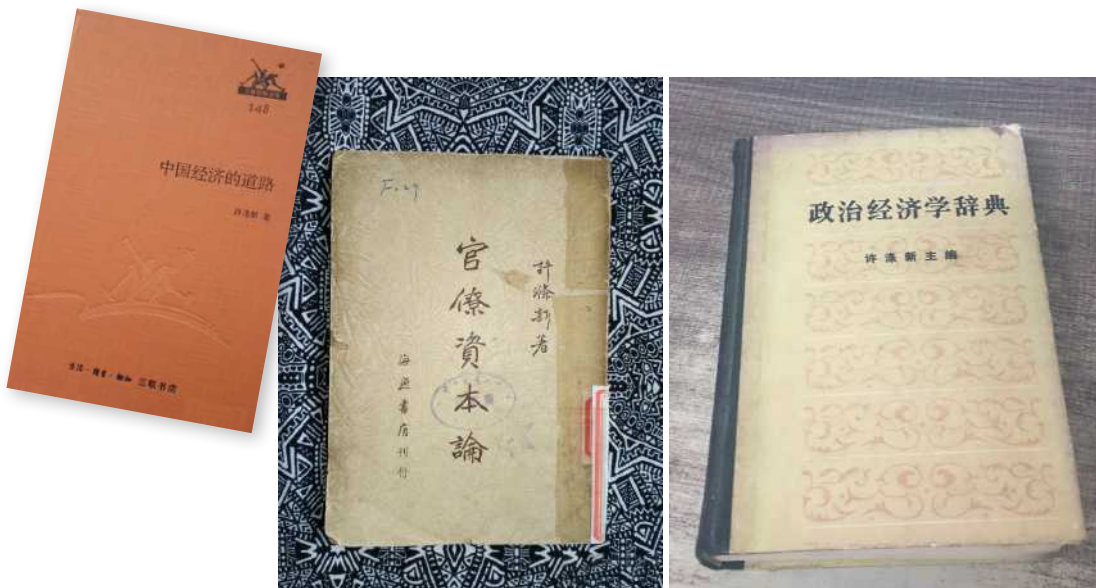 148
中国经济的道路
许涤新 著
生活·读书·新知 三联书店
F029
官僚資本論
許滌新著
海燕書店刊行
政治经济学辞典
许涤新主编